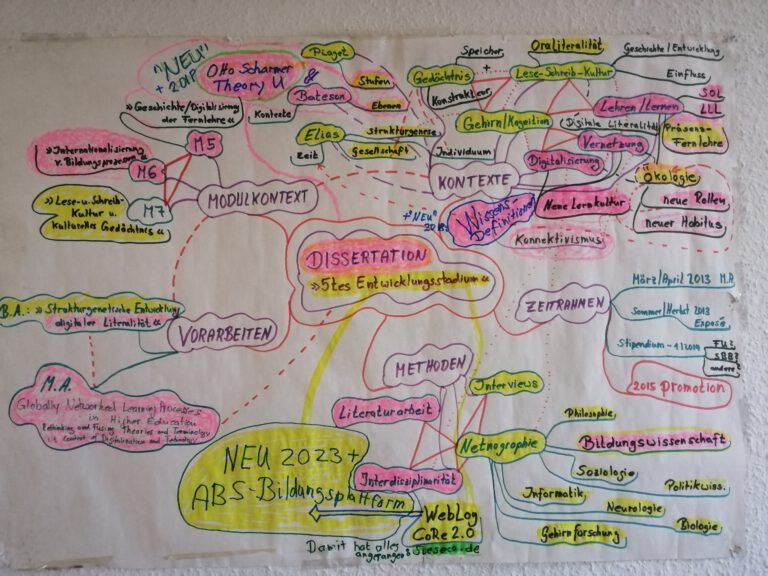 "NEU"
+ 2018
Otto Scharmer
Theory U
&
Piaget
Stufen
Bateson
Kontexte
Ebenen
Elias
strukturgenese
Zeit
Gesellschaft
Speicher
+
Gedächtnis
Konstrukteur
Gehirn/Kognition
Individuum
KONTEXTE
Oraliteralität
Lese-Schreib-Kultur
Geschichte/Entwicklung
Einfluss
Lehren/Lernen
SOL
LLL
Präsenz-
Fernlehre
(Digitale Literalität)
Vernetzung
Digitalisierung
Neue Lernkultur
Ökologie
neue Rollen
neuer Habitus
+"NEU"
Wissens-
Definitionen
Konnektivismus
»Geschichte/Digitalisierung
der Fernlehre«
M5
»Internationalisierung
v. Bildungsprozessen«
M6
M7
»Lese-u-Schreib-
Kultur u.
kulturelles Gedächtnis«
MODULKONTEXT
DISSERTATION
»5tes Entwicklungsstadium«
B.A.: »Strukturgenetische Entwicklung
digitaler Literalität«
VORARBEITEN
M.A.
Globally Networked Learning Processes
in Higher Education
Rethinking and Fusing Theories and Terminology
Context of Digitalization and Technology
ZEITRAHMEN
März/April 2013 M.A.
Sommer/Herbst 2013
Exposé
Stipendium - 4/2014
FU?
SBB?
andere?
2015 Promotion
METHODEN
Interviews
Literaturarbeit
Netnographie
Interdisziplinarität
Philosophie
Bildungswissenschaft
Soziologie
Politikwiss.
Informatik
Neurologie
Biologie
Gehirnforschung
NEU 2023 +
ABS-Bildungsplattform
WebLog
CoRe 2.0
Damit hat alles
angefangen